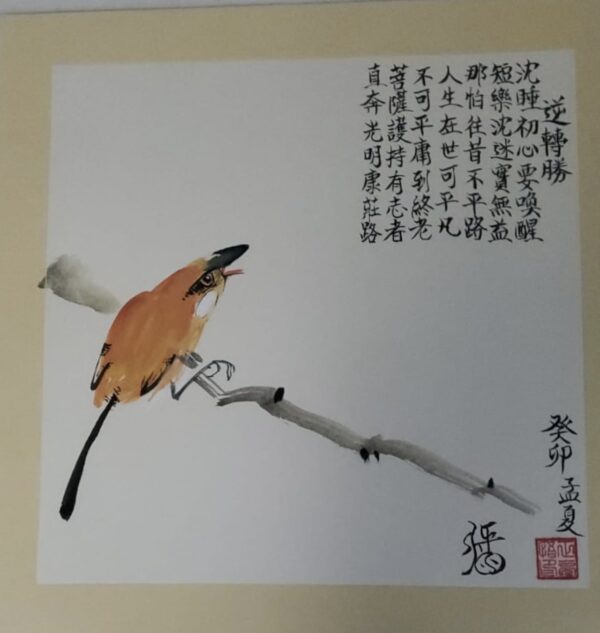 逆轉勝
沈睡初心要喚醒
短樂沈迷實無益
那怕往昔不平路
人生在世可平凡
不可平庸到終老
菩薩護持有志者
直奔光明康莊路
癸卯孟夏